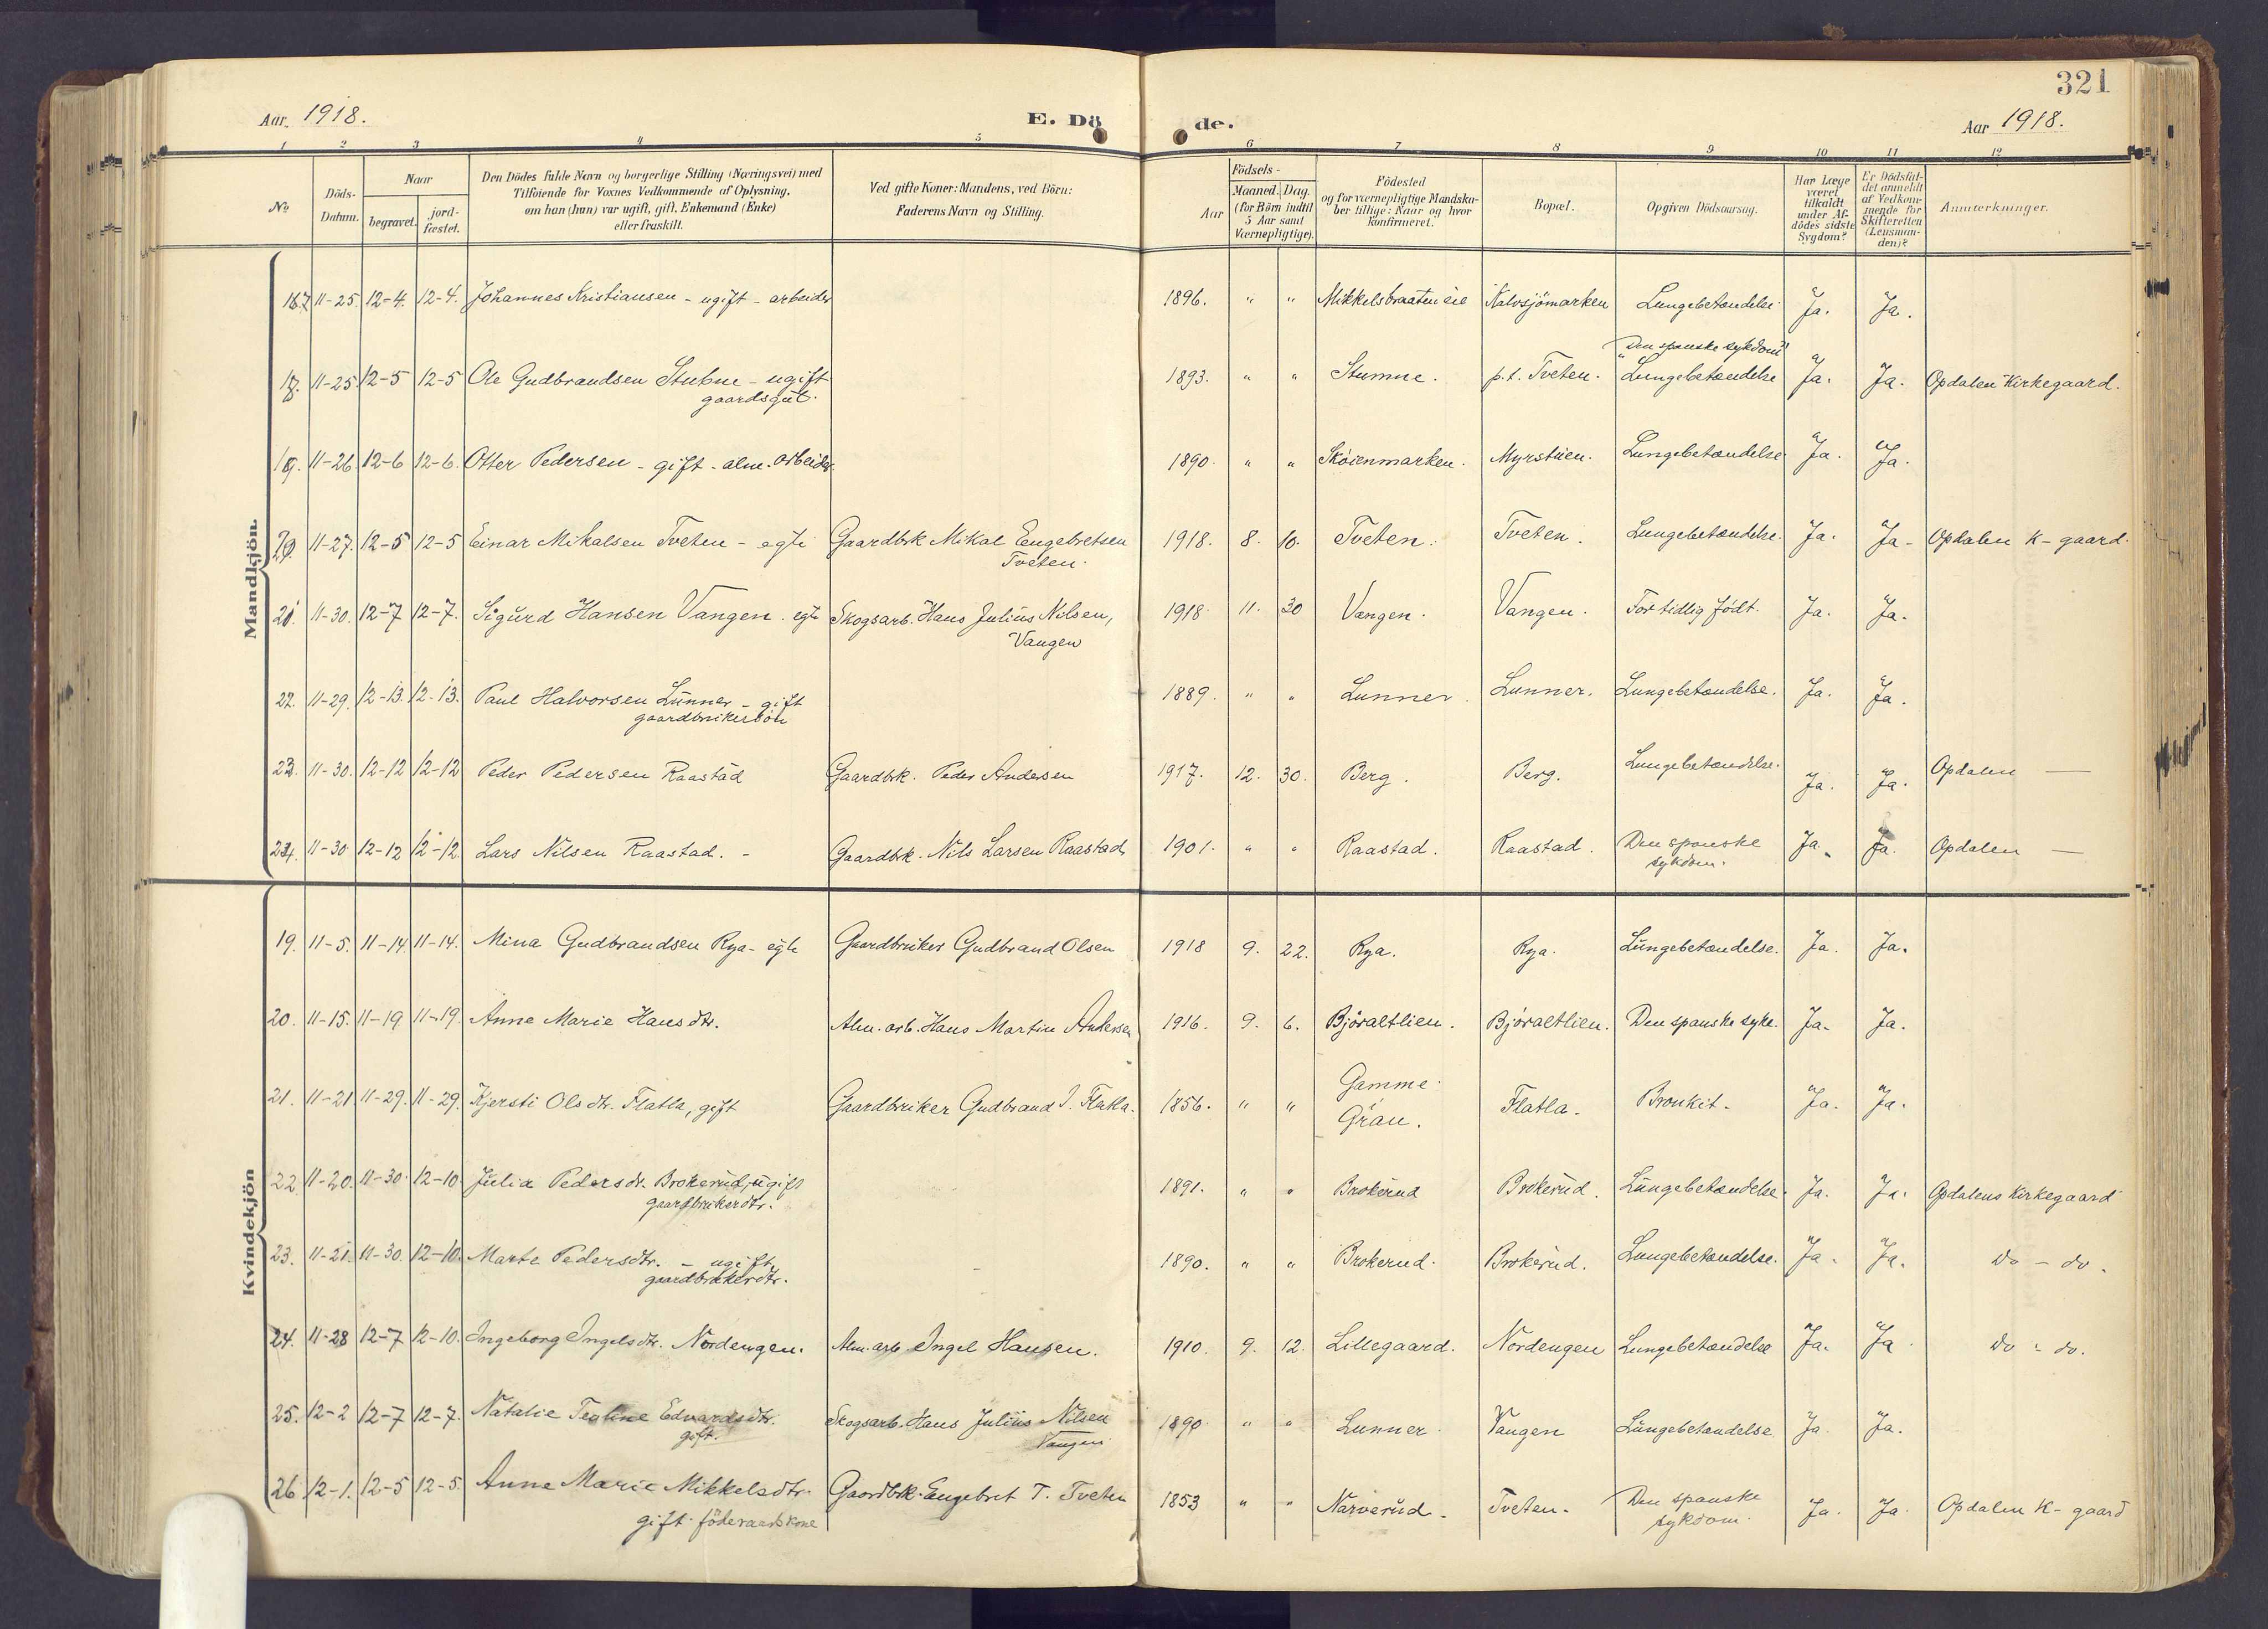 321
Aar. 1918.
E. Dö
de.
Aar 1918.
1 2 3 4 5 6 7 8 9 10 11 12
No
Döds-
Datum.
Naar
begravet.
jord-
fæstet.
Den Dödes fulde Navn og borgerlige Stilling (Næringsvei) med
Tilföiende for Voxnes Vedkommende af Oplysning,
om han (hun) var ugift, gift, Enkemand (Enke)
eller fraskilt.
Ved gifte Koner: Mandens, ved Börn:
Faderens Navn og Stilling.
Födsels-
Aar
Maaned. Dag.
(for Börn indtil
5 Aar samt
Værnepligtige).
Födested
og for værnepligtige Mandska-
ber tillige: Naar og hvor
konfirmeret.
Bopæl.
Opgiven Dödsaarsag.
Har Læge
været
tilkaldt
under Af-
dödes sidste
Sygdom?
Er Dödsfal-
det anmeldt
af Vedkom-
mende for
Skifteretten
(Lensman-
den)?
Anmærkninger.
Mandkjön.
17. 11-25. 12-4. 12-4. Johannes Kristiansen - ugift - arbeider 1896. " " Mikkelsbraaten eie Kalvsjömarken Lungebetændelse. Ja. Ja.
Den spanske sykdom
18. 11-25 12-5 12-5 Ole Gudbrandsen Stubne - ugift 1893. " " Stumne. p.t. Tveten. Lungebetændelse Ja. Ja. Opdalen Kirkegaard.
gaardsgut.
19. 11-26. 12-6 12-6. Otter Pedersen - gift - alm. arbeider. 1890. " " Skoienmarken. Myrstuen. Lungebetændelse Ja. Ja.
20. 11-27. 12-5 12-5 Einar Mikalsen Tveten - egte Gaardbrk Mikal Engebretsen 1918. 8. 10. Tveten. Tveten. Lungebetændelse. Ja. Ja - Opdalen K-gaard.
Tveten.
21. 11-30. 12-7 12-7. Sigurd Hansen Vangen. egte Skogsarb. Hans Julius Nilsen, 1918 11. 30 Vangen. Vangen. For tidlig født. Ja. Ja.
Vangen
22. 11-29. 12-13. 12-13. Paul Halvorsen Lunner - gift 1889. " " Lunner. Lunner. Lungebetændelse. Ja. Ja.
gaardbrukersön
23. 11-30. 12-12 12-12 Peder Pedersen Raastad Gaardbrk. Peder Andersen 1917. 12. 30. Berg. Berg. Lungebetændelse. Ja. Ja. Opdalen —
24. 11-30 12-12 12-12 Lars Nilsen Raastad. - Gaardbrk. Nils Larsen Raastad. 1901. " " Raastad. Raastad. Den spanske Ja. Ja. Opdalen —
sykdom.
Kvindekjön
19. 11-5. 11-14 11-14. Mina Gudbrandsen Rya - egte Gaardbruker Gudbrand Olsen 1918 9. 22. Rya. Rya. Lungebetændelse. Ja. Ja.
20. 11-15. 11-19 11-19. Anne Marie Hansdtr. Alm. arb. Hans Martin Andersen 1916. 9. 6. Björaltlien. Björaltlien. Den spanske syke. Ja. Ja.
21. 11-21 11-29. 11-29. Kjersti Olsdtr. Flatla, gift Gaardbruker Gudbrand I. Flatla. 1856. " " Gamme Flatla. Bronkit. Ja. Ja.
Gran.
22 11-20. 11-30. 12-10 Julia Pedersdt. Brokerud, ugift 1891. " " Brokerud Brokerud. Lungebetændelse. Ja. Ja. Opdalens Kirkegaard
gaardbrukerdtr.
23. 11-21. 11-30. 12-10. Marte Pedersdtr. - ugift, 1890. " " Brokerud. Brokerud. Lungebetændelse. Ja. Ja. do - do.
gaardbrukerdtr.
24. 11-28 12-7 12-10. Ingeborg Ingelsdtr. Nordengen. Alm. arb. Ingel Hansen. 1910. 9. 12. Lillegaard. Nordengen Lungebetændelse Ja. Ja. do - do.
25. 12-2 12-7 12-7. Natalie Teoline Edvardsdtr. Skogsarb. Hans Julius Nilsen 1890. " " Lunner Vangen Lungebetændelse Ja. Ja.
gift. Vangen
26 12-1. 12-5 12-5. Anne Marie Mikkelsdtr. Gaardbrk. Engebret T. Tveten 1853 " " Narverud. Tveten. Den spanske Ja. Ja. Opdalen K-gaard
gift. föderaadskone sykdom.